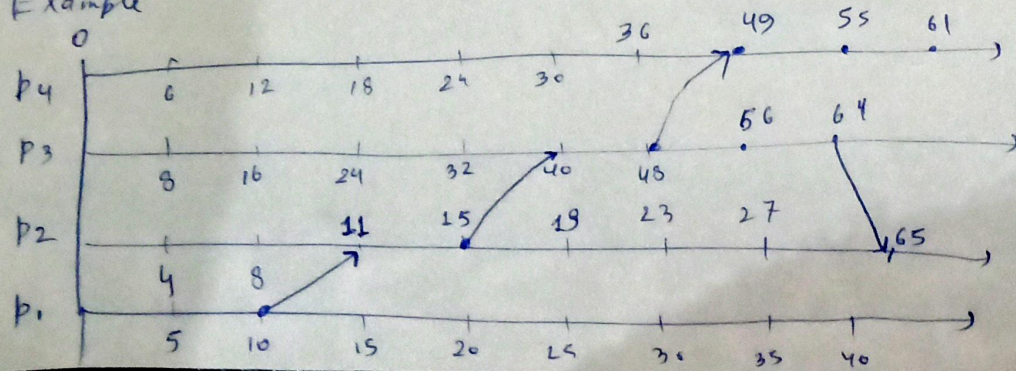 Example
0 36 49 55 61
P4 6 12 18 24 30
56 64
P3 8 16 24 32 40 48
11 15 19 23 27
P2 65
4 8
P1 5 10 15 20 25 30 35 40